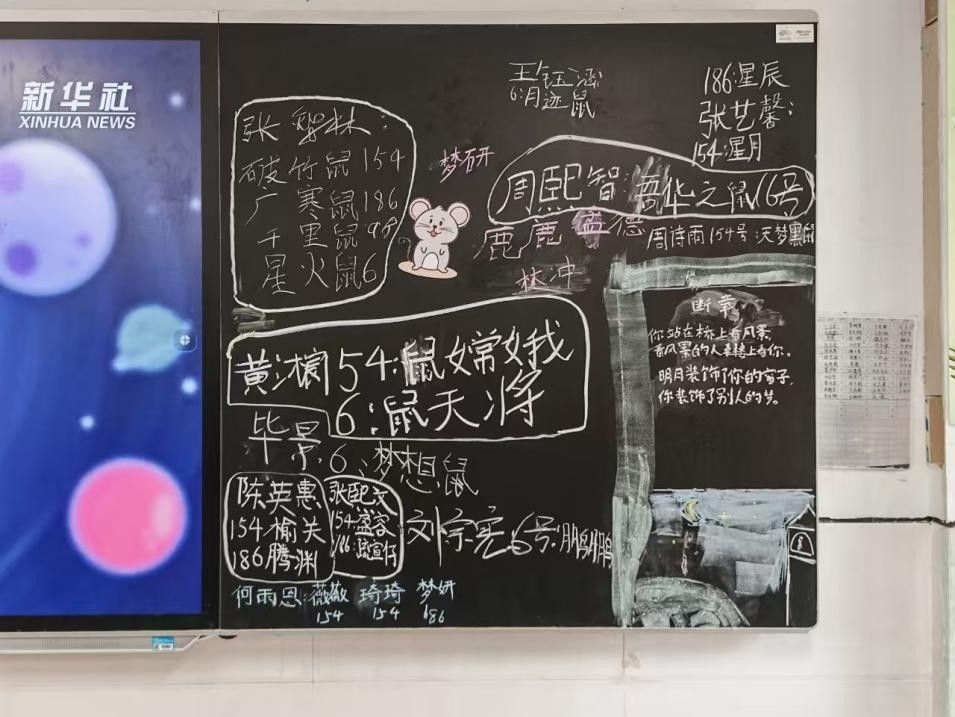 新华社
XINHUA NEWS
王钰涵
6:月迹鼠
186:星辰
张艺馨:
154:星月
张黎林:
破竹鼠154
广寒鼠186
千里鼠98
星火鼠6
梦研
周熙智:吾华之鼠16号
鹿鹿 盖德
周诗雨154号:天梦黑鼠
林冲
断章
你站在桥上看风景,
看风景的人在楼上看你。
明月装饰了你的窗子,
你装饰了别人的梦。
黄淑桐 54:鼠嫦娥
6:鼠天将
毕景 6、梦想鼠
陈英惠
154榆关
186腾渊
张熙文
154:盛容
刘宗宪:6号:鹏鹏
何雨恩:薇薇 琦琦 梦妍
154 154 686